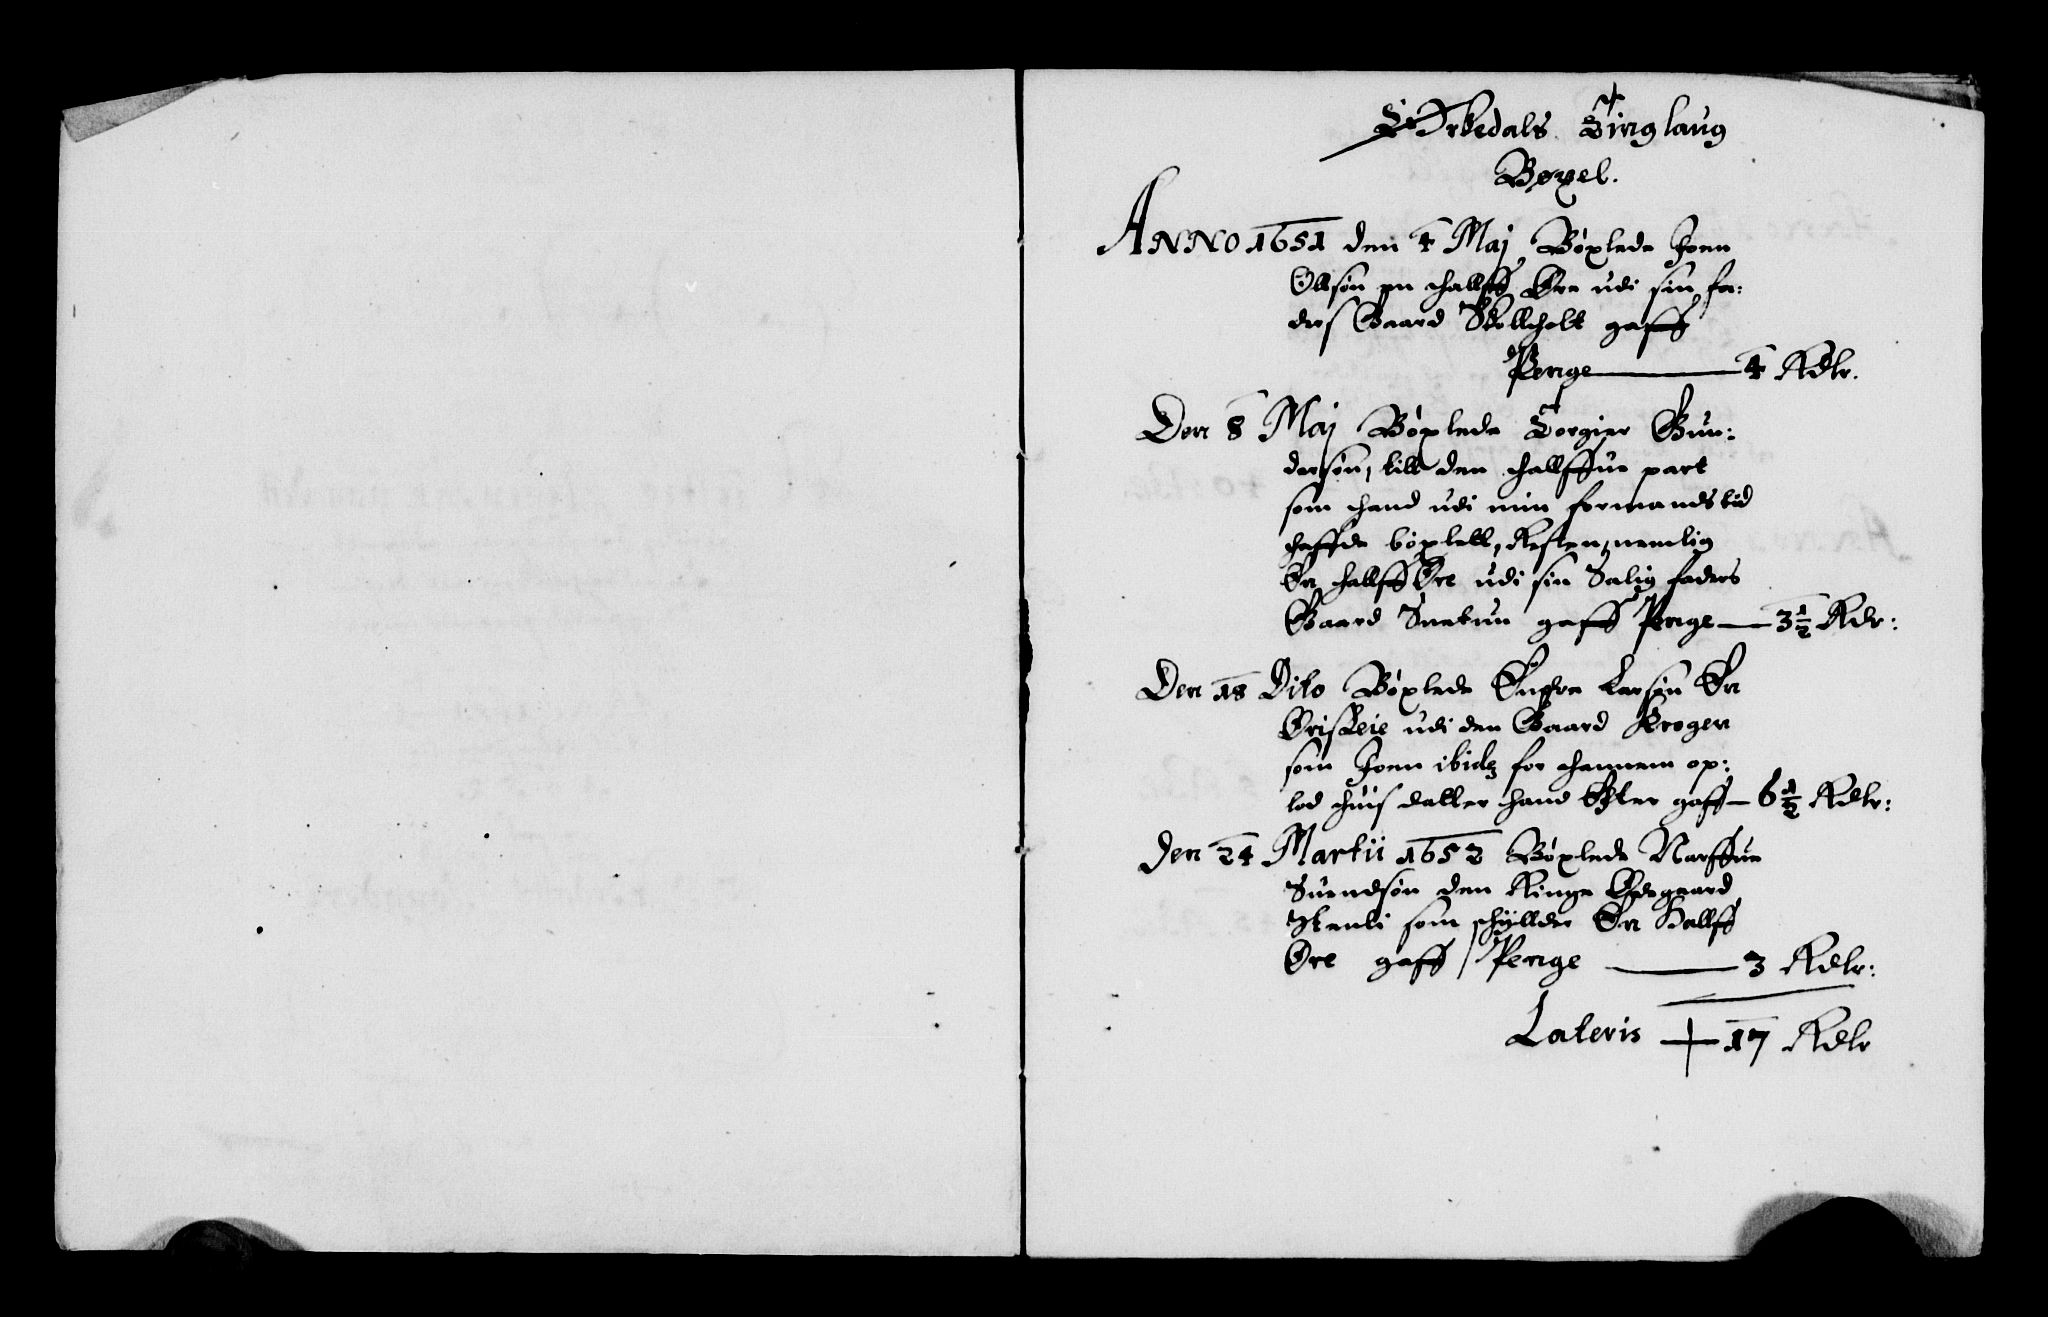 Ørkedals Tinglaug
Bøxel.
ANNO 1651 den 4 Maj Bøxlede Joen
Ollsøn en hallff Øre udi sin fa:
ders Gaard Skollholt gaff
Penge 4 Rdlr.
Den 8 Maj Bøxlede Torgier Gun:
dersøn, till den hallffue part
som hand udi min formands tid
haffde bøxlett, Resten, nemlig
En hallff Øre udi sin Salig faders
Gaard gaff Penge 3½ Rdr:
Den 18 Dito Bøxlede Larsøn En
udi den Gaard Krogen
som Joen ibidz for hannem op:
lod huis datter hand Egter gaff 6½ Rdlr:
Den 24 Martii 1652 Bøxlede Narffue
Suendsøn den Ringe Ødegaard
som schyller En Hallff
Øre gaff Penge 3 Rdlr:
Lateris 17 Rdlr